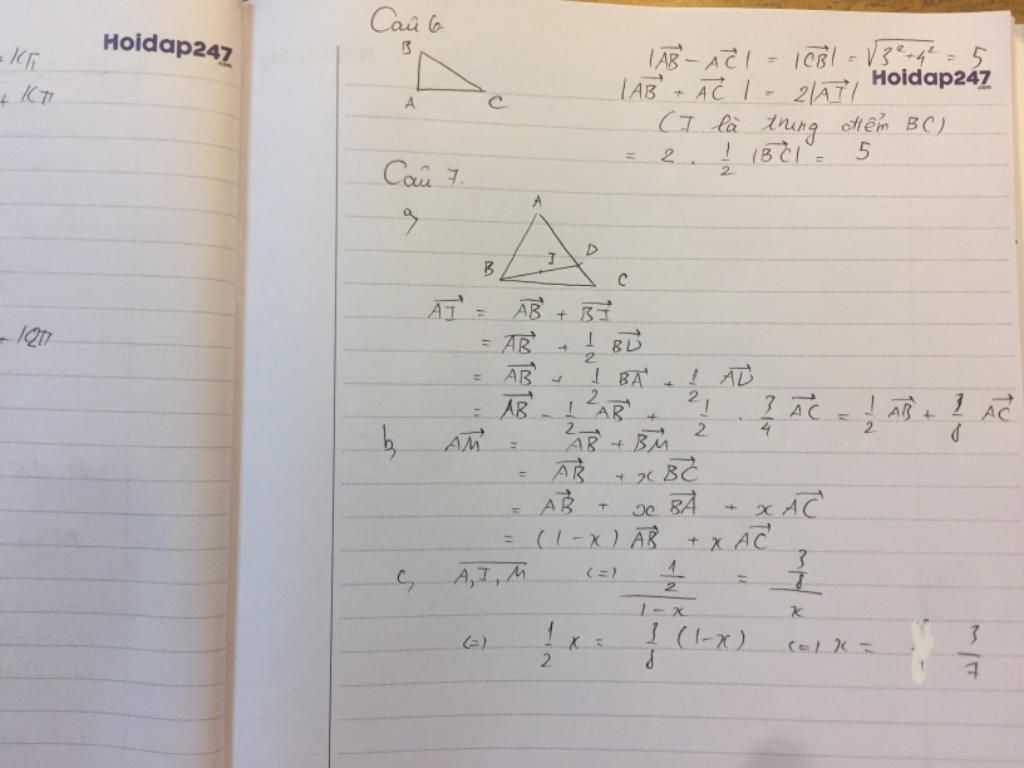 Hoidap247
.com
+ Kπ
+ Kπ
+ K2π
Câu 6.
B
A C
|AB→ - AC→| = |CB→| = √(3² + 4²) = 5
Hoidap247
.com
|AB→ + AC→| = 2|AI→|
(I là trung điểm BC)
= 2 . 1/2 |BC→| = 5
Câu 7.
a,
A
D
I
B C
AI→ = AB→ + BI→
= AB→ + 1/2 BD→
= AB→ + 1/2 BA→ + 1/2 AD→
= AB→ - 1/2 AB→ + 1/2 . 3/4 AC→ = 1/2 AB→ + 3/8 AC→
b, AM→ = AB→ + BM→
= AB→ + x BC→
= AB→ + x BA→ + x AC→
= (1-x) AB→ + x AC→
c, A, I, M (=) (1/2)/(1-x) = (3/8)/x
(=) 1/2 x = 3/8 (1-x) (=) x = 3/7